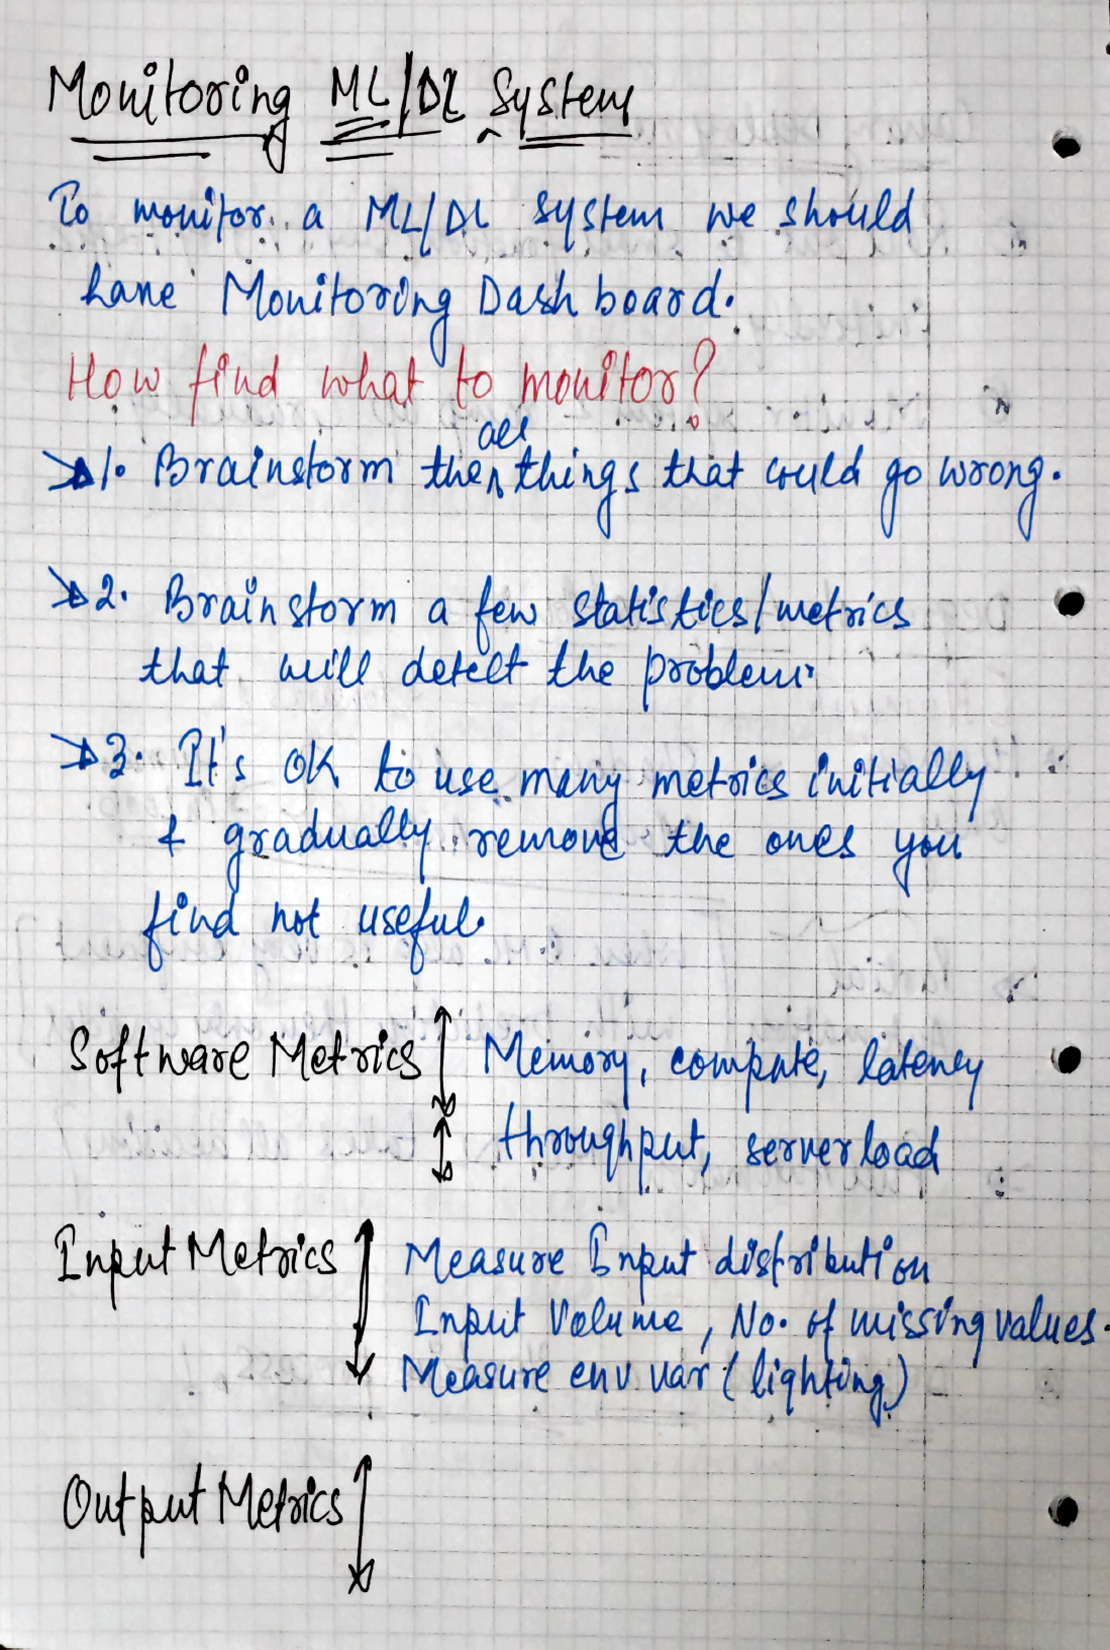 Monitoring ML/DL System
To monitor a ML/DL system we should
have Monitoring Dash board.
How find what to monitor?
1. Brainstorm the all things that could go wrong.
2. Brainstorm a few statistics/metrics
that will detect the problem.
3. It's OK to use many metrics initially
& gradually remove the ones you
find not useful.
Software Metrics Memory, compute, latency
throughput, server load
Input Metrics Measure Input distribution
Input Volume, No. of missing values.
Measure env var (lighting)
Output Metrics